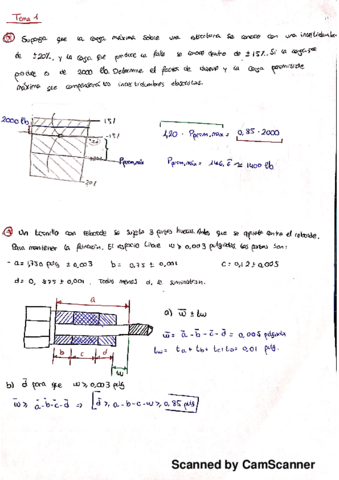 Tema 1
Suponga que la carga máxima sobre una estructura se conoce con una incertidumbre
de ±20%, y la carga que produce la falla se conoce dentro de ±15%. Si la carga que
produce es de 2000 lb. Determine el factor de diseño y la carga permisible
máxima que compensará las incertidumbres absolutas.
2000 lb
15%
-15%
+20%
Pprom,máx
-20%
1,20 · Pprom,máx = 0,85 · 2000
Pprom,máx = ≈ 1400 lb
Un tornillo con reborde se sujeta 3 partes huecas antes que se apriete contra el reborde.
Para mantener la función. El espacio libre w ≥ 0,003 pulgadas. Las partes son:
- a = 1,750 pulg ± 0,003 b = 0,75 ± 0,001 c = 0,12 ± 0,005
d = 0, 875 ± 0,001. Todos menos d, se suministran.
a
b
c
d
w
a) w̄ ± tw
w̄ = ā - b̄ - c̄ - d̄ = 0,005 pulgada
tw = ta + tb + tc + td = 0,01 pulg.
b) d̄ para que w ≥ 0,003 pulg
w̄ ≥ ā - b̄ - c̄ - d̄ ⇒ d̄ ≥ a - b - c - w ≥ 0,86 pulg
Scanned by CamScanner